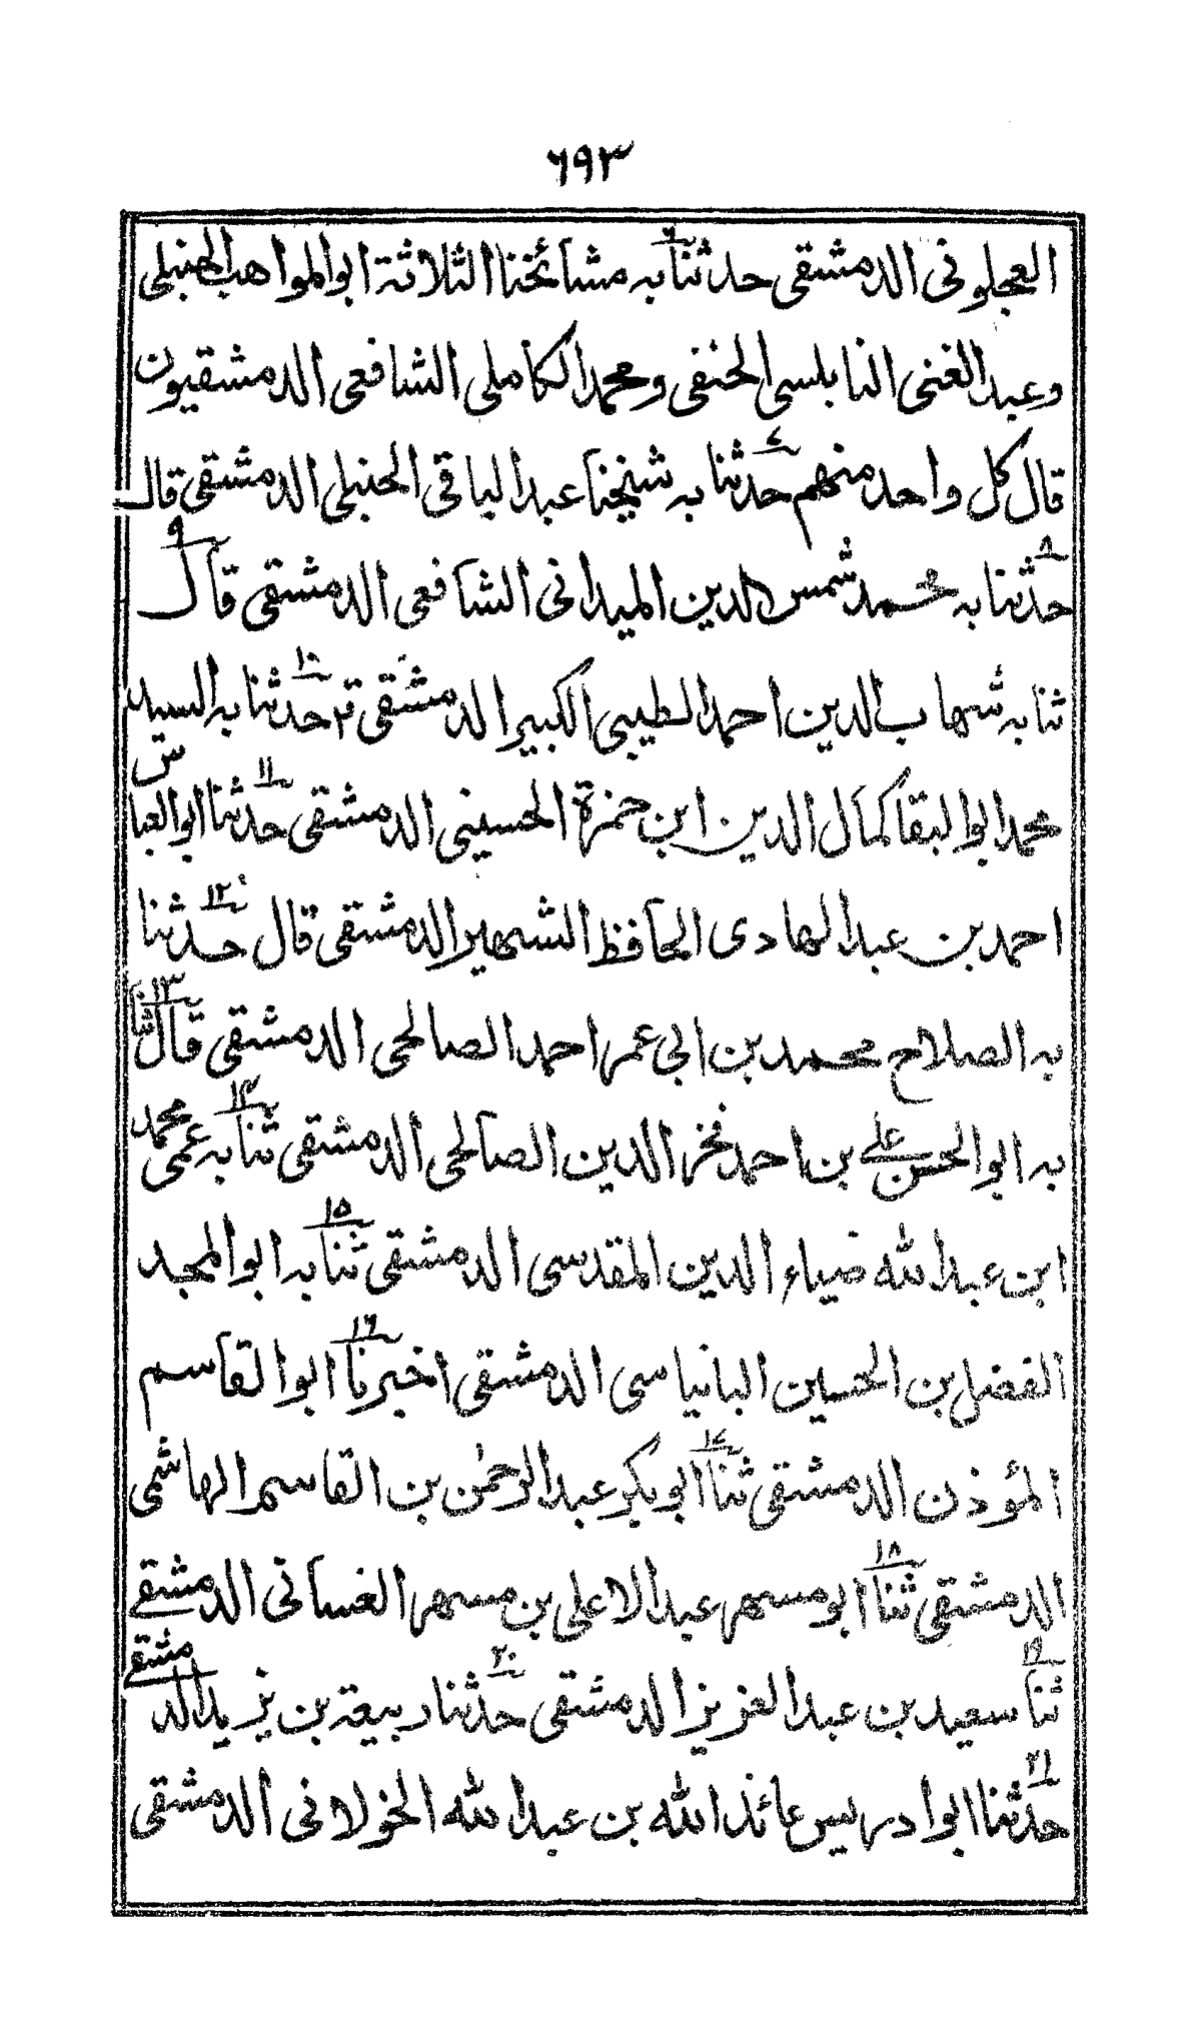 ٦٩٣
العجلونی الدمشقی حدثنا ٦ به مشائخنا الثلاثة ابوالمواهب الحنبلی
وعبدالغنی النابلسی الحنفی ومحمد الکاملی الشافعی الدمشقیون
قال کل واحد منهم حدثنا ۷ به شیخنا عبدالباقی الحنبلی الدمشقی قال
حدثنا ۸ به محمد شمس الدین المیدانی الشافعی الدمشقی قال ۹
ثنا به شهاب الدین احمد الطیبی الکبیر الدمشقی قر حدثنا ۱۰ به السید
محمد ابوالبقا کمال الدین ابن حمزة الحسینی الدمشقی حدثنا ۱۱ ابوالعباس
احمد بن عبدالهادی الحافظ الشهیر الدمشقی قال حدثنا ۱۲
به الصلاح محمد بن ابی عمر احمد الصالحی الدمشقی قال ثنا ۱۳
به ابوالحسن علی بن احمد فخر الدین الصالحی الدمشقی ثنا ۱۴ به عمی محمد
ابن عبدالله ضیاء الدین المقدسی الدمشقی ثنا ۱۵ به ابوالمجد
الفضل بن الحسین البانیاسی الدمشقی اخبرنا ۱۶ ابوالقاسم
المؤذن الدمشقی ثنا ۱۷ ابوبکر عبدالرحمٰن بن القاسم الهاشمی
الدمشقی ثنا ۱۸ ابومسهر عبدالاعلی بن مسهر الغسانی الدمشقی
ثنا ۱۹ سعید بن عبدالعزیز الدمشقی حدثنا ۲۰ ربیعة بن یزید الدمشقی
حدثنا ۲۱ ابوادریس عائذ الله بن عبدالله الخولانی الدمشقی